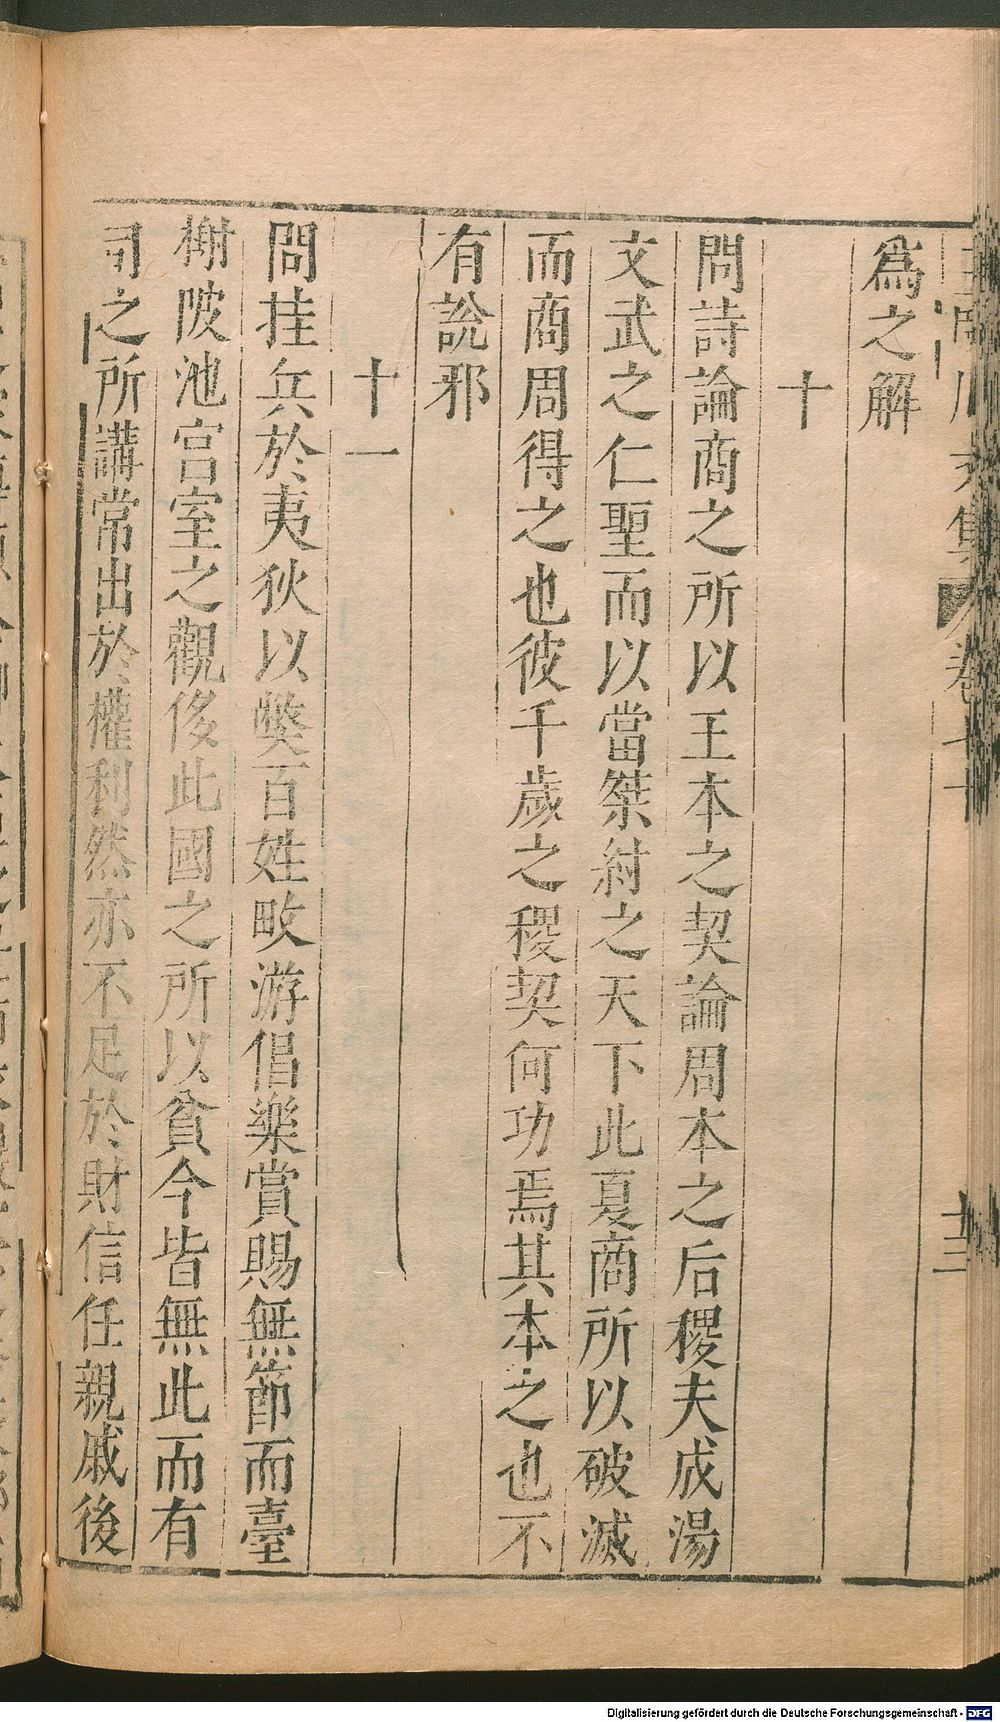 為之解
十
問詩論商之所以王本之契論周本之后稷夫成湯
文武之仁聖而以當桀紂之天下此夏商所以破滅
而商周得之也彼千歲之稷契何功焉其本之也不
有說邪
十一
問挂兵於夷狄以獘百姓畋游倡樂賞賜無節而臺
榭陂池宫室之觀侈此國之所以貧今皆無此而有
司之所講常出於權利然亦不足於財信任親戚後
Digitalisierung gefördert durch die Deutsche Forschungsgemeinschaft - DFG